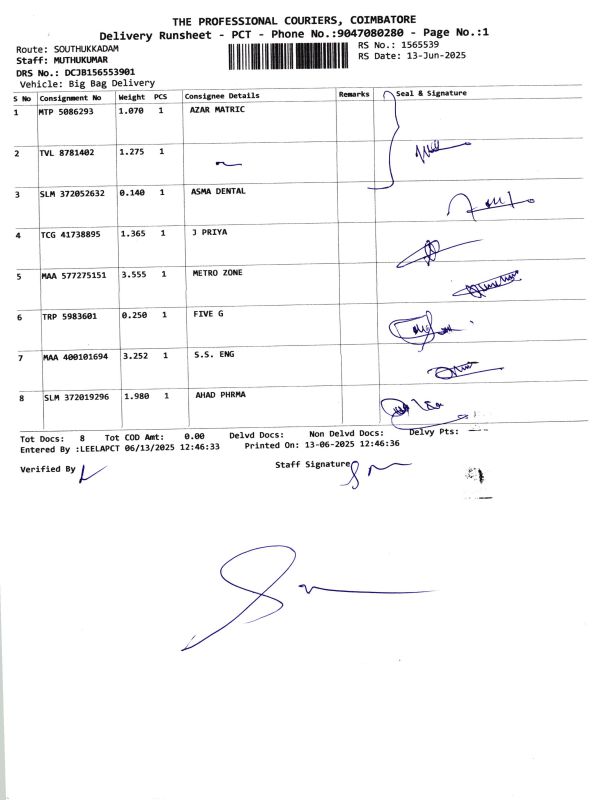 THE PROFESSIONAL COURIERS, COIMBATORE
Delivery Runsheet - PCT - Phone No.:9047080280 - Page No.:1
Route: SOUTHUKKADAM
RS No.: 1565539
Staff: MUTHUKUMAR
RS Date: 13-Jun-2025
DRS No.: DCJB156553901
Vehicle: Big Bag Delivery
S No Consignment No Weight PCS Consignee Details Remarks Seal & Signature
1 MTP 5086293 1.070 1 AZAR MATRIC
2 TVL 8781402 1.275 1
3 SLM 372052632 0.140 1 ASMA DENTAL
4 TCG 41738895 1.365 1 J PRIYA
5 MAA 577275151 3.555 1 METRO ZONE
6 TRP 5983601 0.250 1 FIVE G
7 MAA 400101694 3.252 1 S.S. ENG
8 SLM 372019296 1.980 1 AHAD PHRMA
Tot Docs: 8 Tot COD Amt: 0.00 Delvd Docs: Non Delvd Docs: Delvy Pts:
Entered By :LEELAPCT 06/13/2025 12:46:33 Printed On: 13-06-2025 12:46:36
Verified By
Staff Signature